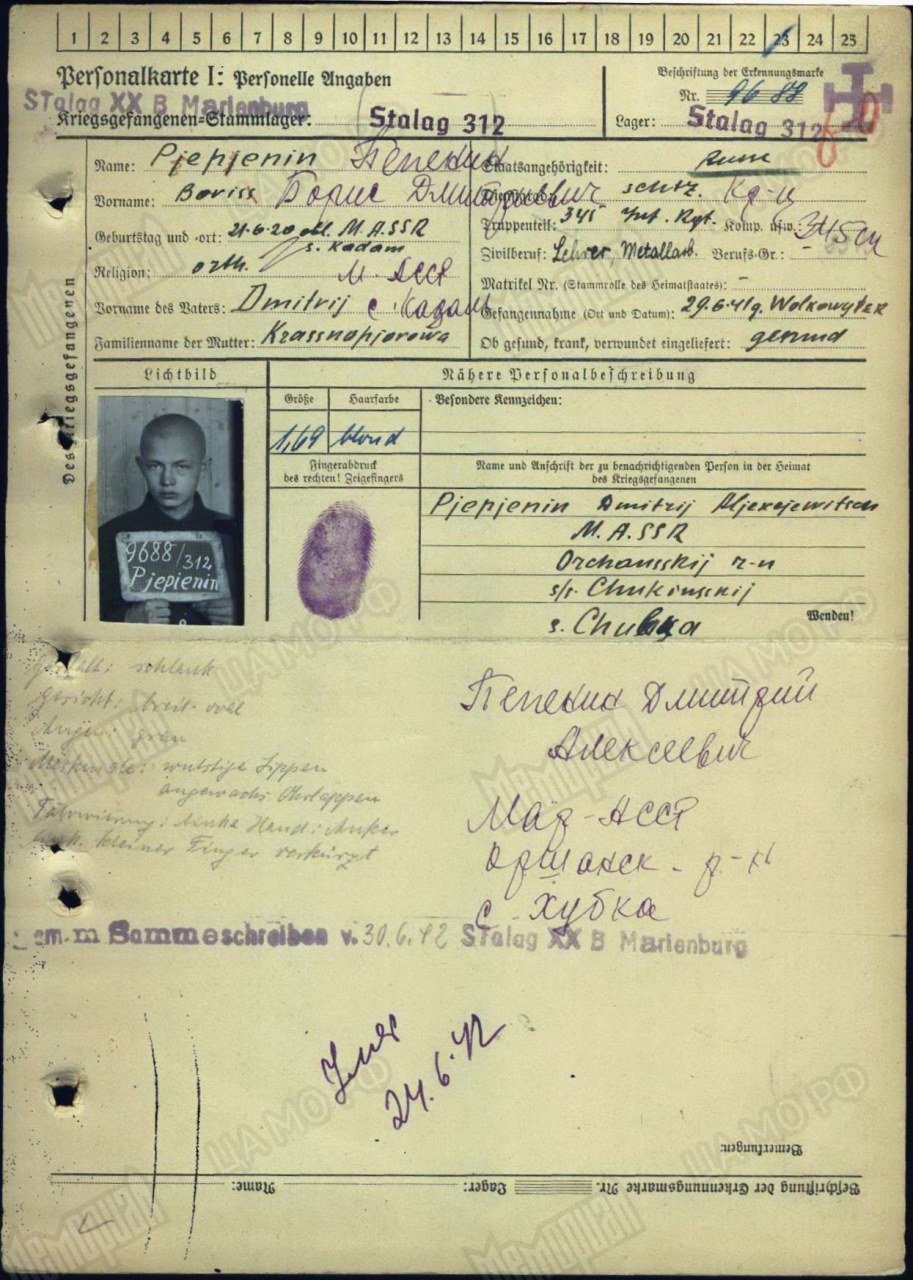 1 2 3 4 5 6 7 8 9 10 11 12 13 14 15 16 17 18 19 20 21 22 23 24 25
Personalkarte I: Personelle Angaben
Beschriftung der Erkennungsmarke
Stalag XX B Marienburg
Nr. 9688
Kriegsgefangenen-Stammlager: Stalag 312
Lager: Stalag 312
Des Kriegsgefangenen
Name: Pjepjenin Пепекин
Staatsangehörigkeit:
Vorname: Boriss Борис Дмитриевич
schtz. Кр-ц
Geburtstag und -ort: 21.6.20 M.ASSR
s. Kadam
Truppenteil: 345 Inf. Rgt. Komp. usw.: 345 сп
Religion: orth. М. АССР
Zivilberuf: Lehrer, Metallarb. Berufs-Gr.: -
Vorname des Vaters: Dmitrij с Кадам
Matrikel Nr. (Stammrolle des Heimatstaates): -
Familienname der Mutter: Krassnopjorowa
Gefangennahme (Ort und Datum): 29.6.41g. Wolkowysk
Ob gesund, krank, verwundet eingeliefert: gesund
Lichtbild
Nähere Personalbeschreibung
Größe Haarfarbe Besondere Kennzeichen:
1,69 blond
Fingerabdruck
des rechten! Zeigefingers
Name und Anschrift der zu benachrichtigenden Person in der Heimat
des Kriegsgefangenen
9688/312
Pjepienin
Pjepjenin Dmitrij Aljexejewitsch
M.A.SSR
Orchansskij r-n
s/s. Chukinsskij
s. Chubka
Wenden!
Gestalt: schlank
Gesicht: breit-oval
Augen: grau
Merkmale: wulstige Lippen
angewachs. Ohrlappen
Tätowierung: linke Hand: Anker
link. kleiner Finger verkürzt
Пепекин Дмитрий
Алексеевич
Мар-АССР
Оршанск. р-н
с. Хубка
schreiben v. 30.6.42 Stalag XX B Marienburg
24.6.42
Bemerkungen:
Beschriftung der Erkennungsmarke Nr. Lager: Name:
Мемориал
ЦАМО.РФ